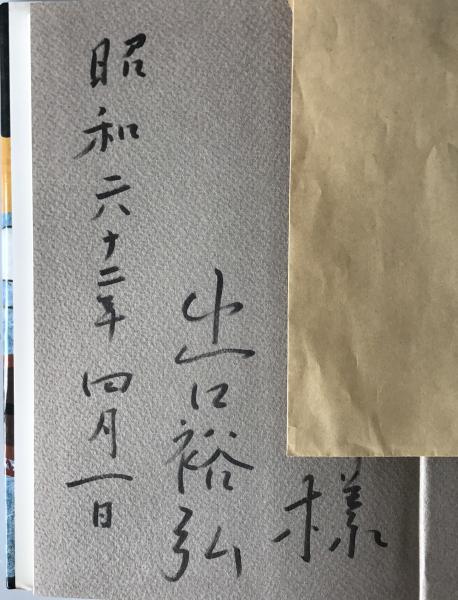 様
出口裕弘
昭和六十二年四月一日